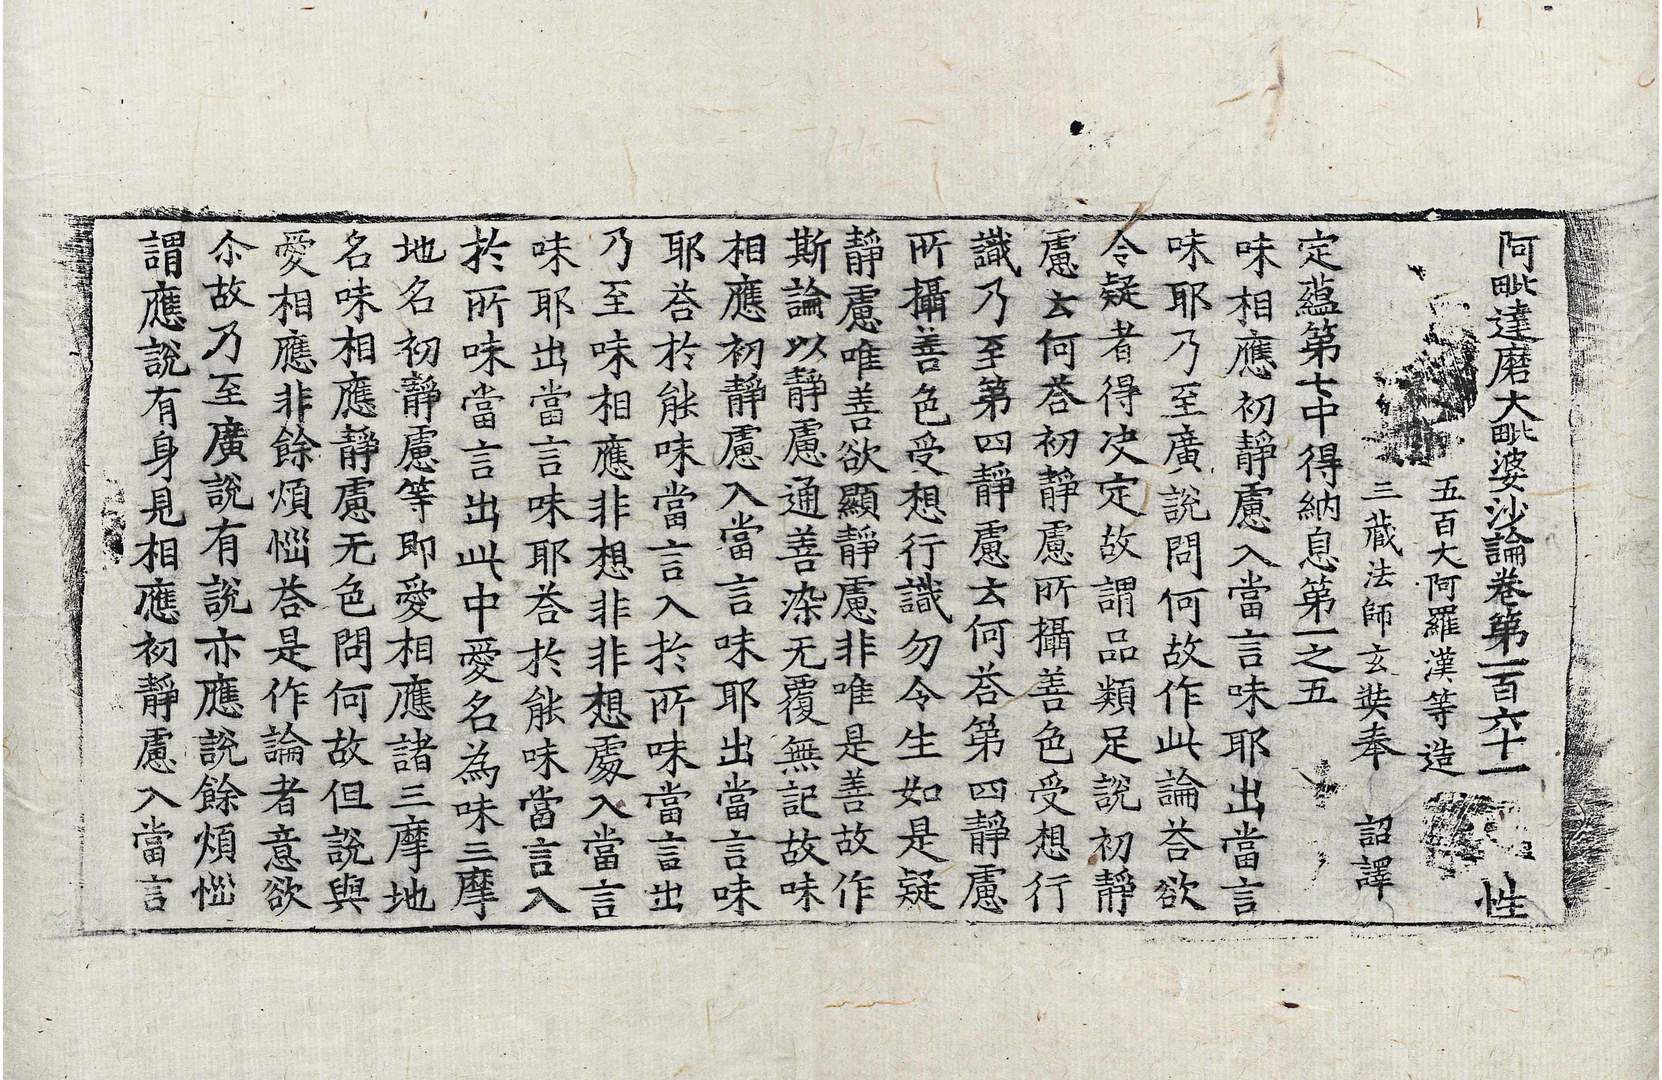 阿毗達磨大毗婆沙論卷第一百六十一 性
五百大阿羅漢等造
三藏法師玄奘奉 詔譯
定蘊第七中得納息第一之五
味相應初靜慮入當言味耶出當言
味耶乃至廣說問何故作此論荅欲
令疑者得決定故謂品類足說初靜
慮云何荅初靜慮所攝善色受想行
識乃至第四靜慮云何荅第四靜慮
所攝善色受想行識勿令生如是疑
靜慮唯善欲顯靜慮非唯是善故作
斯論以靜慮通善染无覆無記故味
相應初靜慮入當言味耶出當言味
耶荅於能味當言入於所味當言出
乃至味相應非想非非想處入當言
味耶出當言味耶荅於能味當言入
於所味當言出此中愛名為味三摩
地名初靜慮等即愛相應諸三摩地
名味相應靜慮无色問何故但說與
愛相應非餘煩惱荅是作論者意欲
尒故乃至廣說有說亦應說餘煩惱
謂應說有身見相應初靜慮入當言